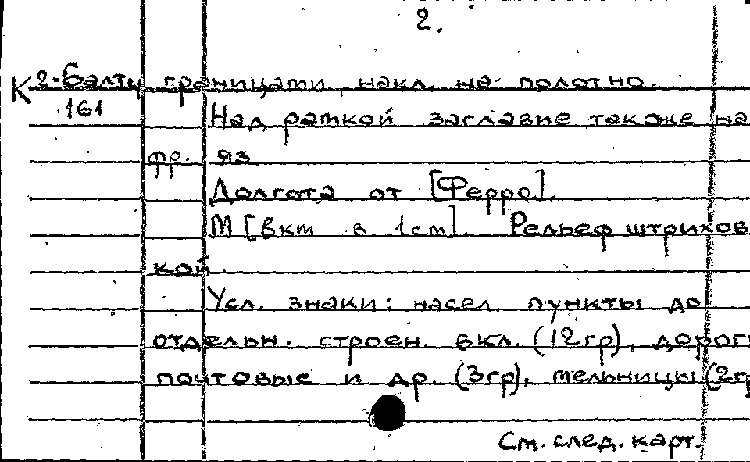 2.
К 2-Балты границами накл. на полотно.
161
Над рамкой заглавие также на
фр. яз
Долгота от [Ферро].
М [8км в 1см]. Рельеф штрихов
кой.
Усл. знаки: насел. пункты до
отдельн. строен. вкл. (12гр), дороги
почтовые и др. (3гр), мельницы (2гр
См. след. карт.